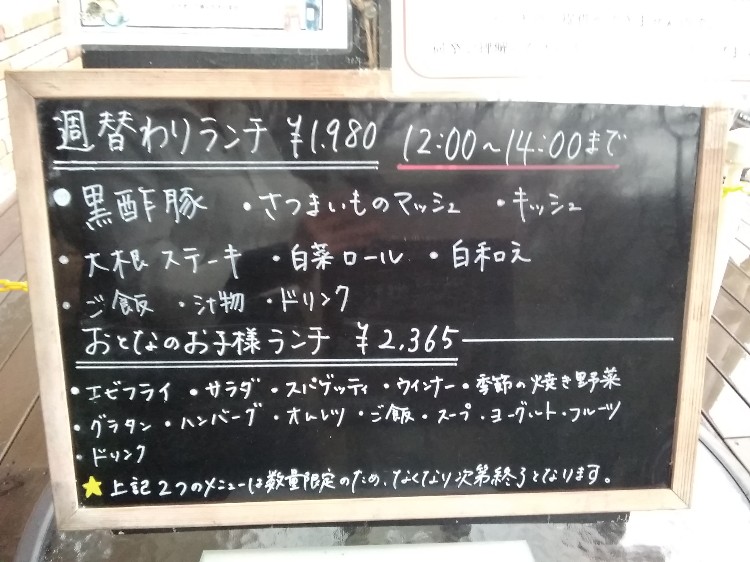 週替わりランチ ¥1,980 12:00~14:00まで
●黒酢豚 ・さつまいものマッシュ ・キッシュ
・大根ステーキ ・白菜ロール ・白和え
・ご飯 ・汁物 ・ドリンク
おとなのお子様ランチ ¥2,365
・エビフライ ・サラダ ・スパゲッティ ・ウインナー ・季節の焼き野菜
・グラタン ・ハンバーグ ・オムレツ ・ご飯 ・スープ ・ヨーグルト ・フルーツ
・ドリンク
★上記2つのメニューは数量限定のため、なくなり次第終了となります。